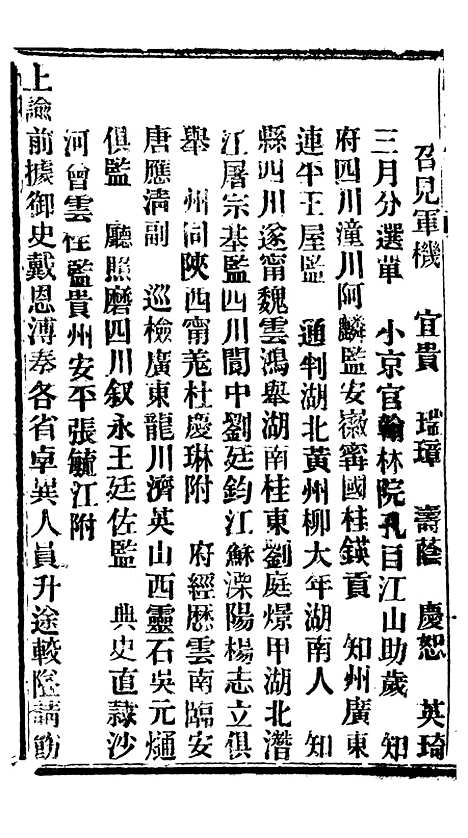 召見軍機　宜貴　瑞璋　壽蔭　慶恕　英琦
三月分選單　小京官翰林院孔目江山助歲　知
府四川潼川阿麟監安徽寧國桂鍈貢　知州廣東
連平王屋監　通判湖北黃州柳大年湖南人　知
縣四川遂甯魏雲鴻舉湖南桂東劉庭燝甲湖北潛
江屠宗基監四川閬中劉廷鈞江蘇溧陽楊志立俱
舉　州同陝西甯羗杜慶琳附　府經歷雲南臨安
唐應淸副　巡檢廣東龍川濟英山西靈石吳元烿
俱監　廳照磨四川叙永王廷佐監　典史直隸沙
河曾雲程監貴州安平張毓江附
上諭前據御史戴恩溥奏各省卓異人員升途較隘請飭